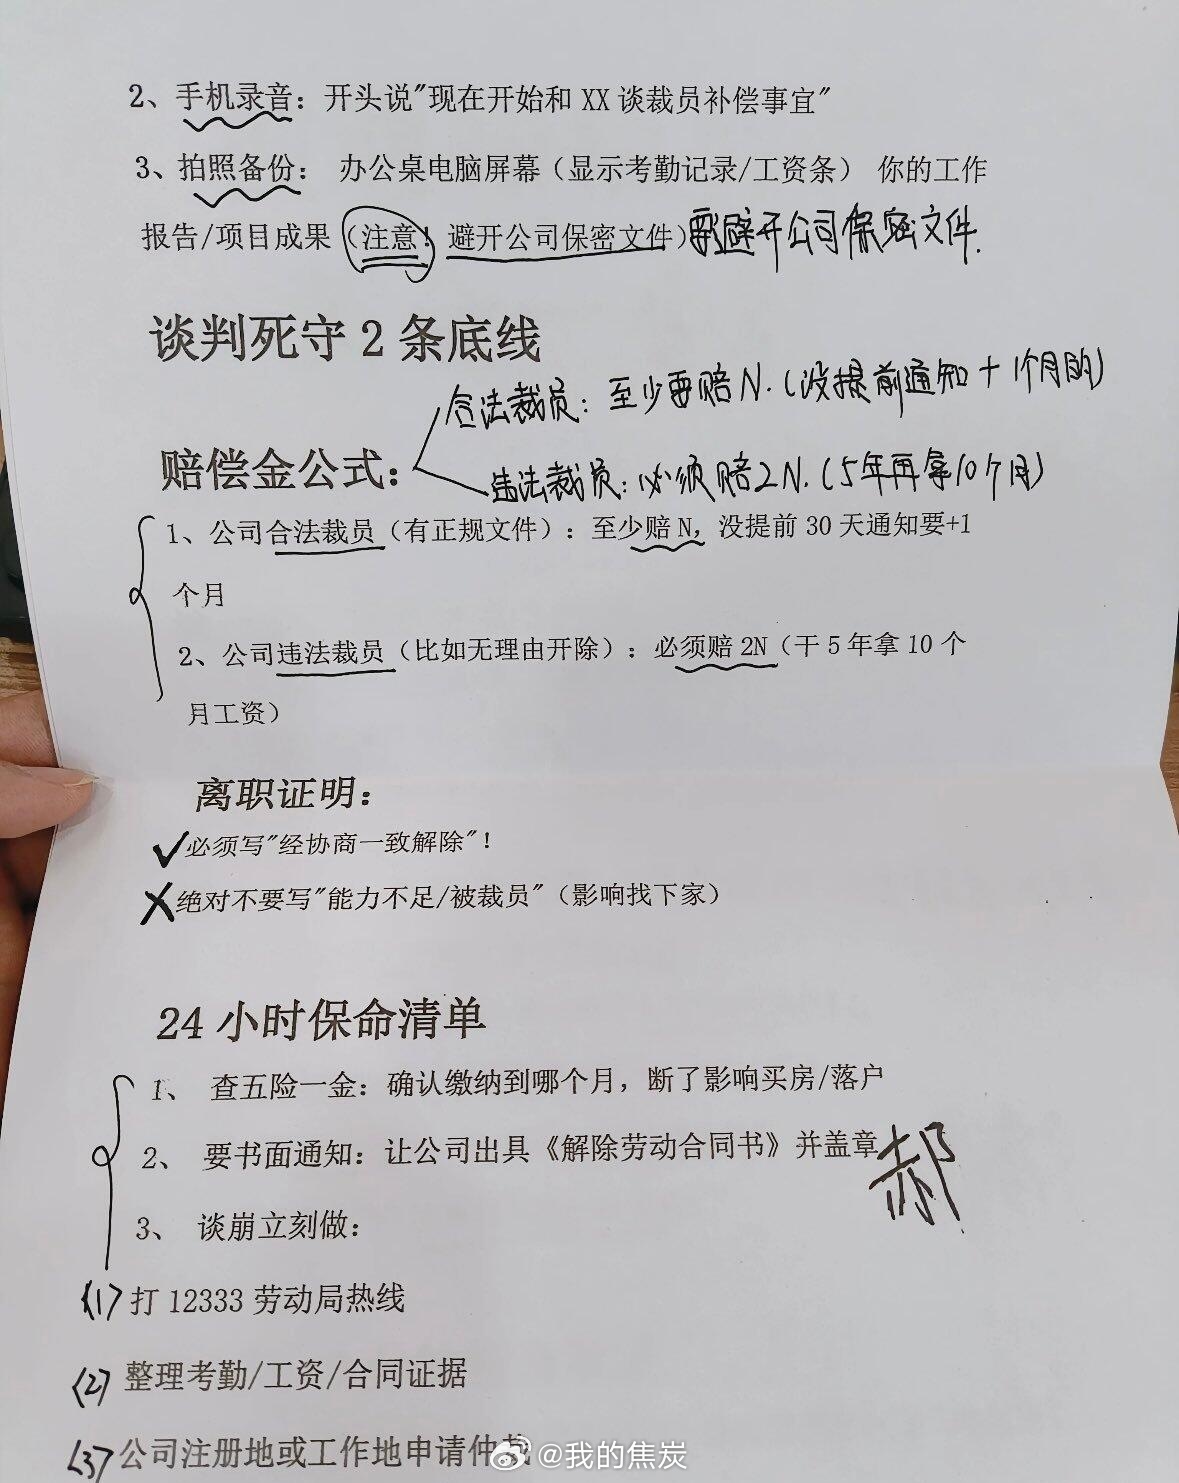 2、手机录音：开头说"现在开始和 XX 谈裁员补偿事宜"
3、拍照备份： 办公桌电脑屏幕（显示考勤记录/工资条） 你的工作
报告/项目成果（注意！避开公司保密文件）要避开公司保密文件.
谈判死守 2 条底线
合法裁员：至少要赔N.（没提前通知+1个月的）
赔偿金公式：
违法裁员：必须赔2N.（5年再拿10个月）
1、公司合法裁员（有正规文件）：至少赔 N，没提前 30 天通知要+1
个月
2、公司违法裁员（比如无理由开除）：必须赔 2N（干 5 年拿 10 个
月工资）
离职证明：
✓必须写"经协商一致解除"！
✗绝对不要写"能力不足/被裁员"（影响找下家）
24 小时保命清单
1、 查五险一金：确认缴纳到哪个月，断了影响买房/落户
2、 要书面通知：让公司出具《解除劳动合同书》并盖章
郝
3、 谈崩立刻做：
(1) 打 12333 劳动局热线
(2) 整理考勤/工资/合同证据
(3) 公司注册地或工作地申请仲裁
@我的焦炭